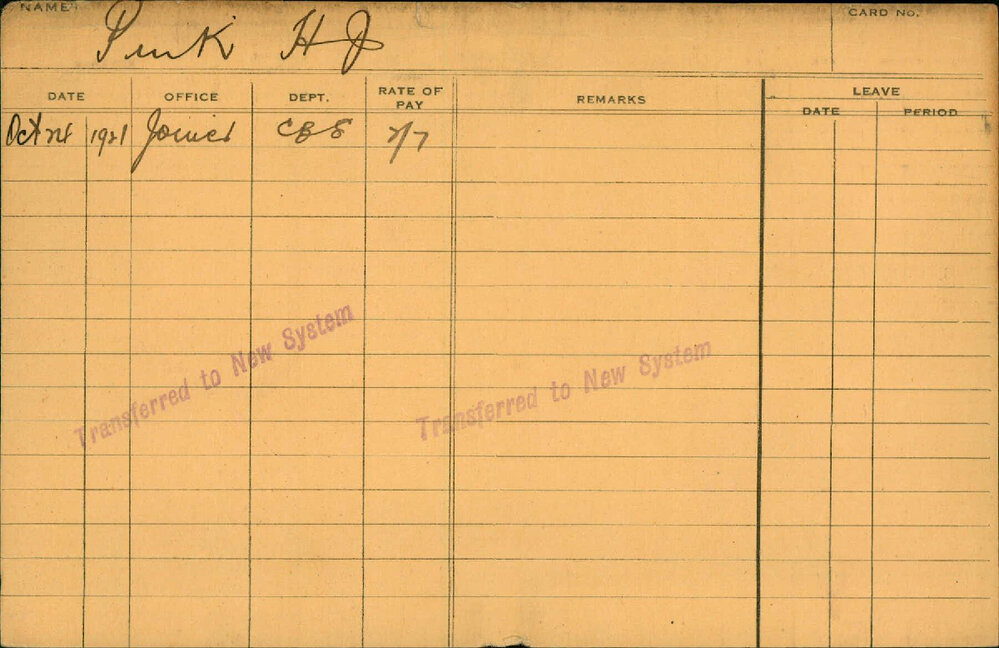 NAME
CARD No.
Pink H J
DATE OFFICE DEPT. RATE OF PAY REMARKS LEAVE
DATE PERIOD
Oct 1921 Joiner 2/7
Transferred to New System
Transferred to New System